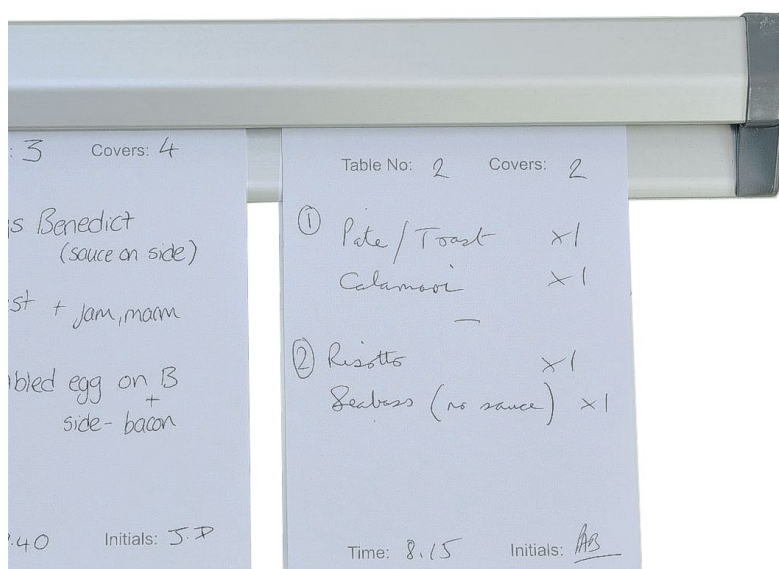 : 3 Covers: 4
s Benedict
(sauce on side)
st + jam, marm
bled egg on B
+
side- bacon
.40 Initials: J.P
Table No: 2 Covers: 2
① Pate / Toast x1
Calamari x1
—
② Risotto x1
Seabass (no sauce) x1
Time: 8.15 Initials: AB